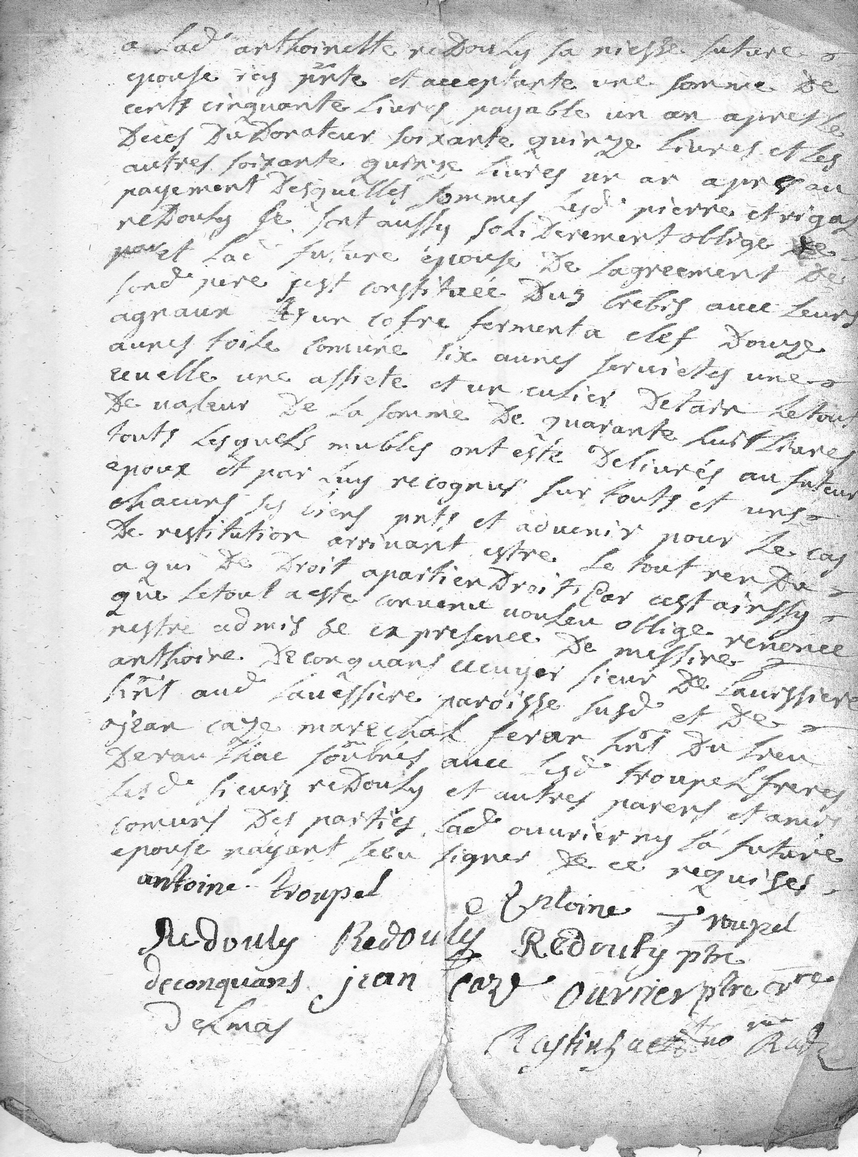 a lad anthoinette redouly sa niesse future
epouse icy pnte et acceptante une somme de
cents cinquante livres payable un an apres le
deces du donateur soixante quinze livres et les
autres soixante quinze livres un an apres au
payement desquelles sommes lesd pierre et rigal
redouly se sont aussy soliderement oblige
et lad future epouse de lagreement de
sond pere sest constituée dus brebis avec leurs
agnaux un cofre ferment a clef douze
aunes toile comune six aunes servietes une
ecuelle une assiete et un culier detain le tout
de valeur de la somme de quarante huit livres
touts lesquels mubles ont este delivrés au futeur
epoux et par luy recognus sur touts et uns
chacuns ses biens pnts et advenir pour le cas
de restitution arrivant estre le tout rendu
a qui de droit apartiendroit Car cest ainssy
que le tout a este convenu voulu oblige renonce
nestre admis se en presence de messire
anthoine deconquans ecuyer sieur de laurssiere
hnt aud lavessiere paroisse susd et de
jean caze marechal feran hnt du lieu
de raulhac soubnés avec lesd troupel freres
lesd sieurs redouly et autres parens et amis
comuns des parties lad ouvrier ny la future
epouse nayant sceu signer de ce requises
antoine troupel
Entoine Troupel
Redouly Redouly Redouly ptre
deconquans jean caze ourrier ptre
Delmas
no